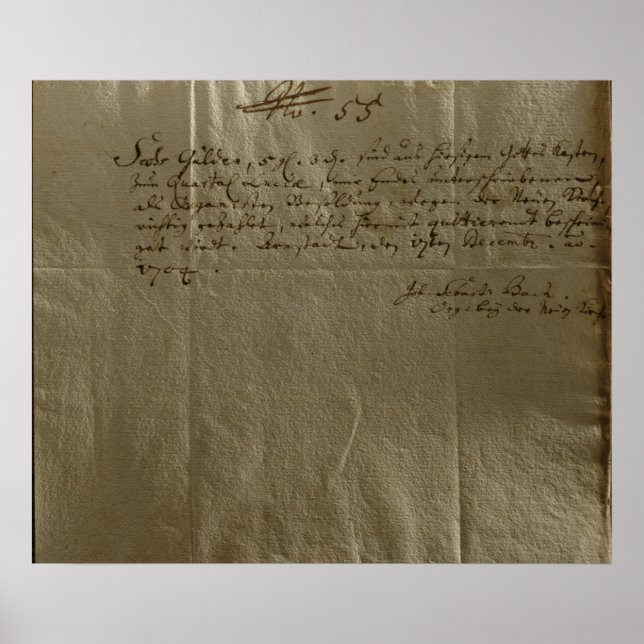 No. 55
Sechs Gülden, 5 gl. 3 d. sind aus hiesigem Gottes Kasten,
zum Quartal Luciæ, mir Endes unterschriebenen
als Organisten Besoldung, wegen der Neuen Kirche
richtig gezahlet, welches hiermit quittierend
wird. Arnstadt, den Decembr. ao.
1704.
Joh. Sebast. Bach.
Org. bey der Neuen Kirche